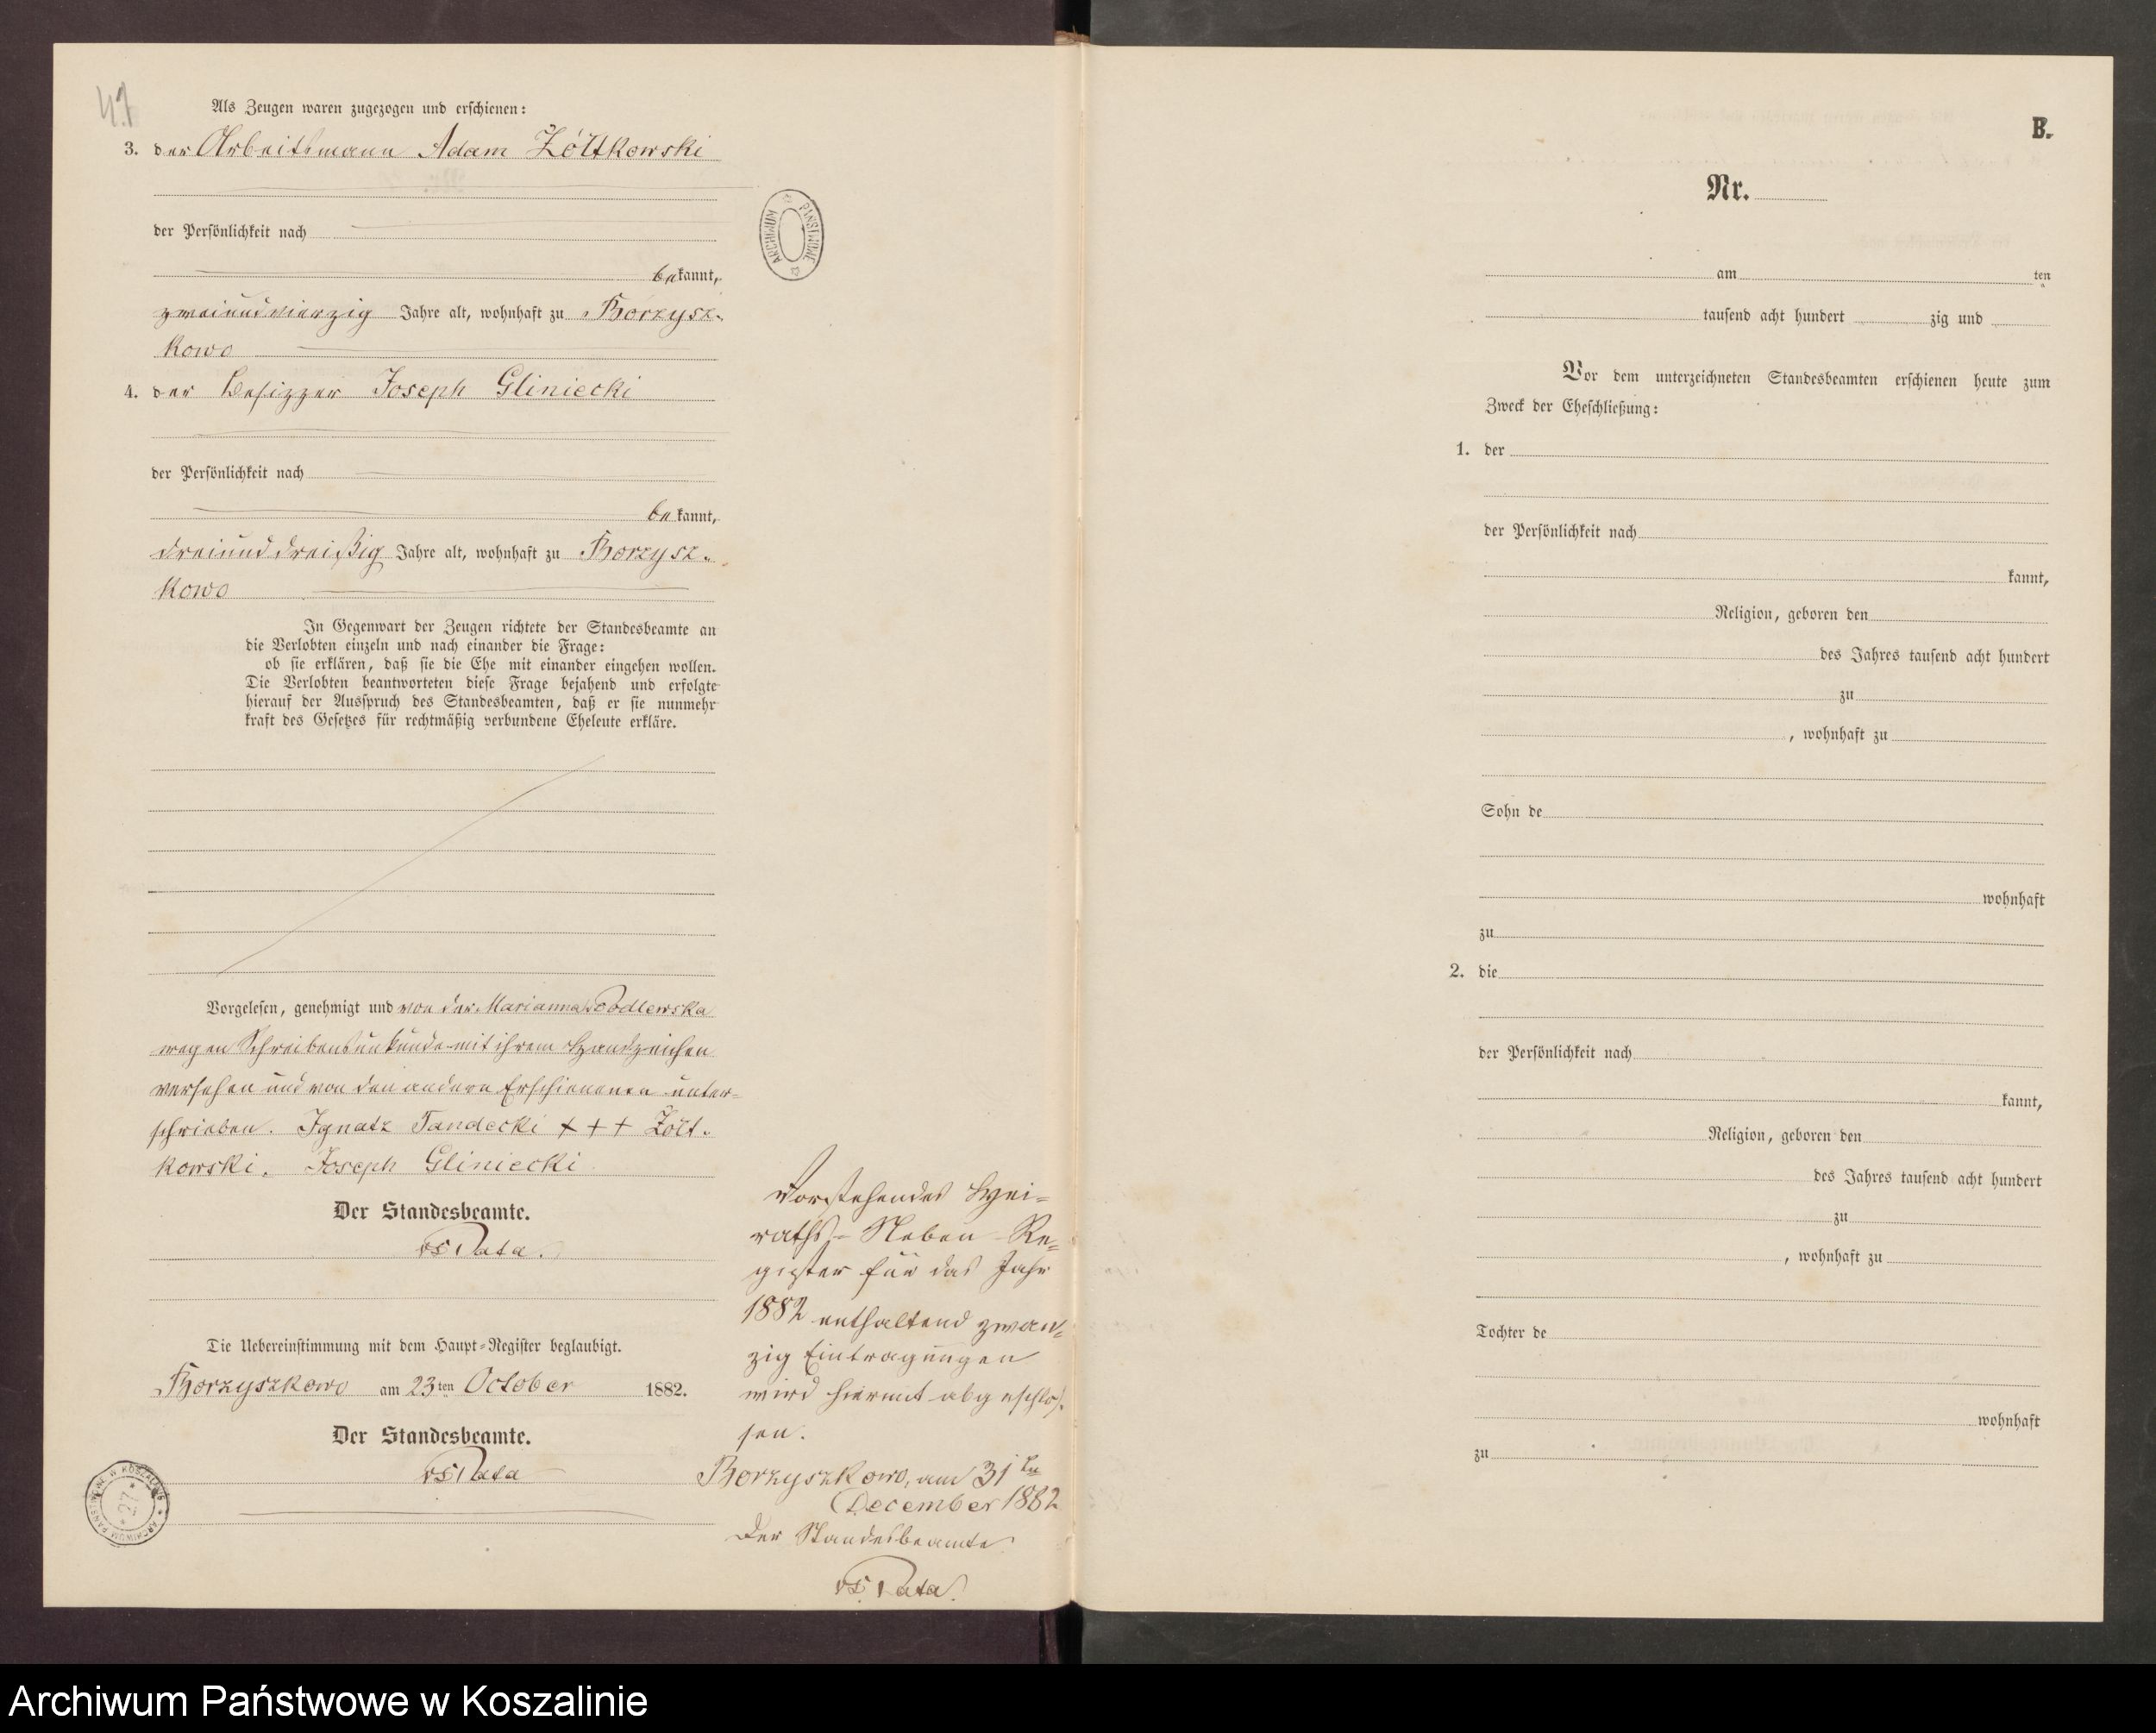 41
Als Zeugen waren zugezogen und erschienen:
3. der Arbeitsmann Adam Żółtkowski
der Persönlichkeit nach
bekannt,
zweiundvierzig Jahre alt, wohnhaft zu Borzysz-
kowo
4. der Besitzer Joseph Gliniecki
der Persönlichkeit nach
bekannt,
dreiunddreißig Jahre alt, wohnhaft zu Borzysz-
kowo
In Gegenwart der Zeugen richtete der Standesbeamte an
die Verlobten einzeln und nach einander die Frage:
ob sie erklären, daß sie die Ehe mit einander eingehen wollen.
Die Verlobten beantworteten diese Frage bejahend und erfolgte
hierauf der Ausspruch des Standesbeamten, daß er sie nunmehr
kraft des Gesetzes für rechtmäßig verbundene Eheleute erkläre.
Vorgelesen, genehmigt und von der Marianna Podlewska
wegen Schreibensunkunde mit ihrem Handzeichen
versehen und von den andern Erschienenen unter-
schrieben. Ignatz Tandecki + + + Żółt-
kowski. Joseph Gliniecki
Der Standesbeamte.
Die Uebereinstimmung mit dem Haupt-Register beglaubigt.
Borzyszkowo am 23ten October 1882.
Der Standesbeamte.
Vorstehendes Hei-
raths-Neben-Re-
gister für das Jahr
1882 enthaltend zwan-
zig Eintragungen
wird hiermit abgeschlos-
sen.
Borzyszkowo, am 31ten
December 1882
Der Standesbeamte
ARCHIWUM PAŃSTWOWE
ARCHIWUM PAŃSTWOWE W KOSZALINIE
27
B.
Nr.
am ten
tausend acht hundert zig und
Vor dem unterzeichneten Standesbeamten erschienen heute zum
Zweck der Eheschließung:
1. der
der Persönlichkeit nach
kannt,
Religion, geboren den
des Jahres tausend acht hundert
zu
, wohnhaft zu
Sohn de
wohnhaft
zu
2. die
der Persönlichkeit nach
kannt,
Religion, geboren den
des Jahres tausend acht hundert
zu
, wohnhaft zu
Tochter de
wohnhaft
zu
Archiwum Państwowe w Koszalinie